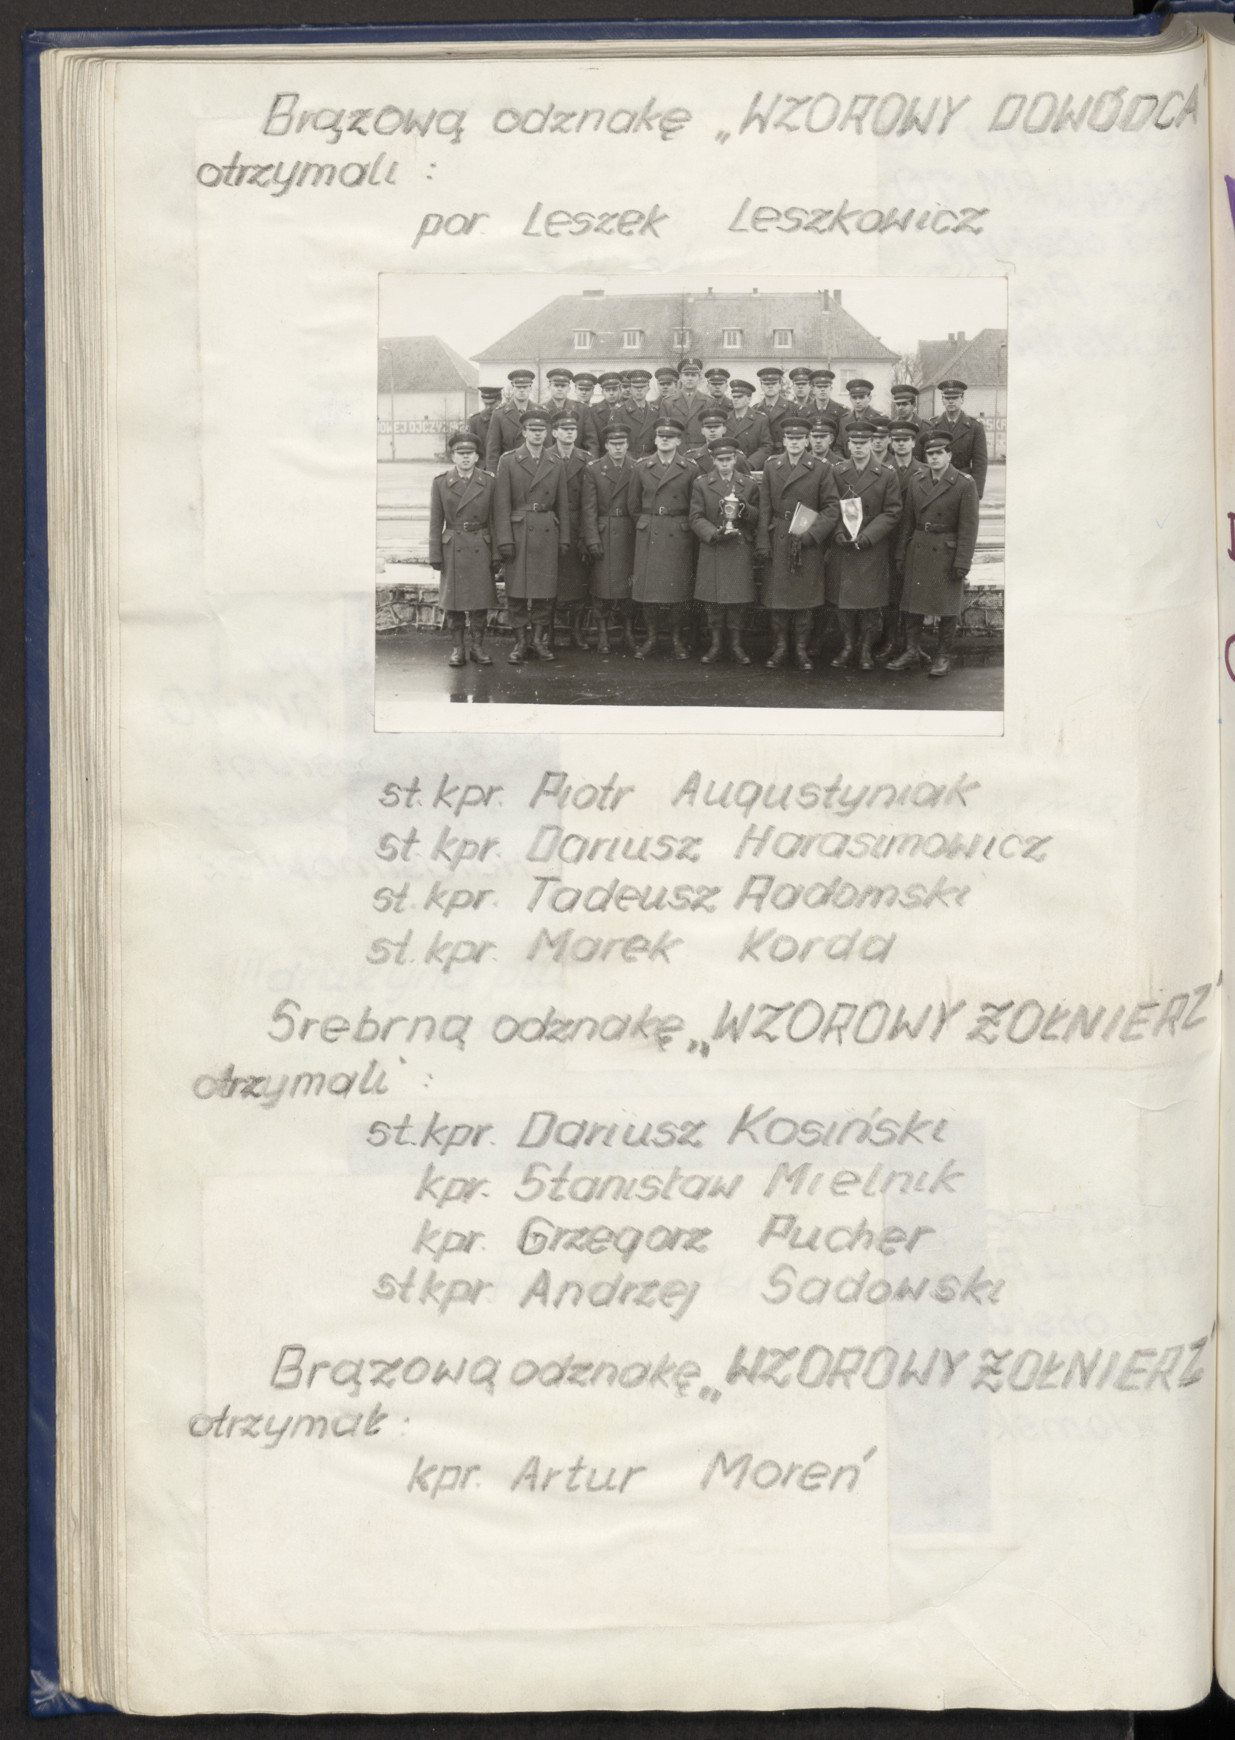 Brązową odznakę „WZOROWY DOWÓDCA"
otrzymali :
por. Leszek Leszkowicz
OWEJ OJCZYZNIE
st. kpr. Piotr Augustyniak
st. kpr. Dariusz Harasimowicz
st. kpr. Tadeusz Radomski
st. kpr. Marek Korda
Srebrną odznakę „WZOROWY ŻOŁNIERZ"
otrzymali :
st. kpr. Dariusz Kosiński
kpr. Stanisław Mielnik
kpr. Grzegorz Pucher
st kpr. Andrzej Sadowski
Brązową odznakę „WZOROWY ŻOŁNIERZ"
otrzymał :
kpr. Artur Moreń